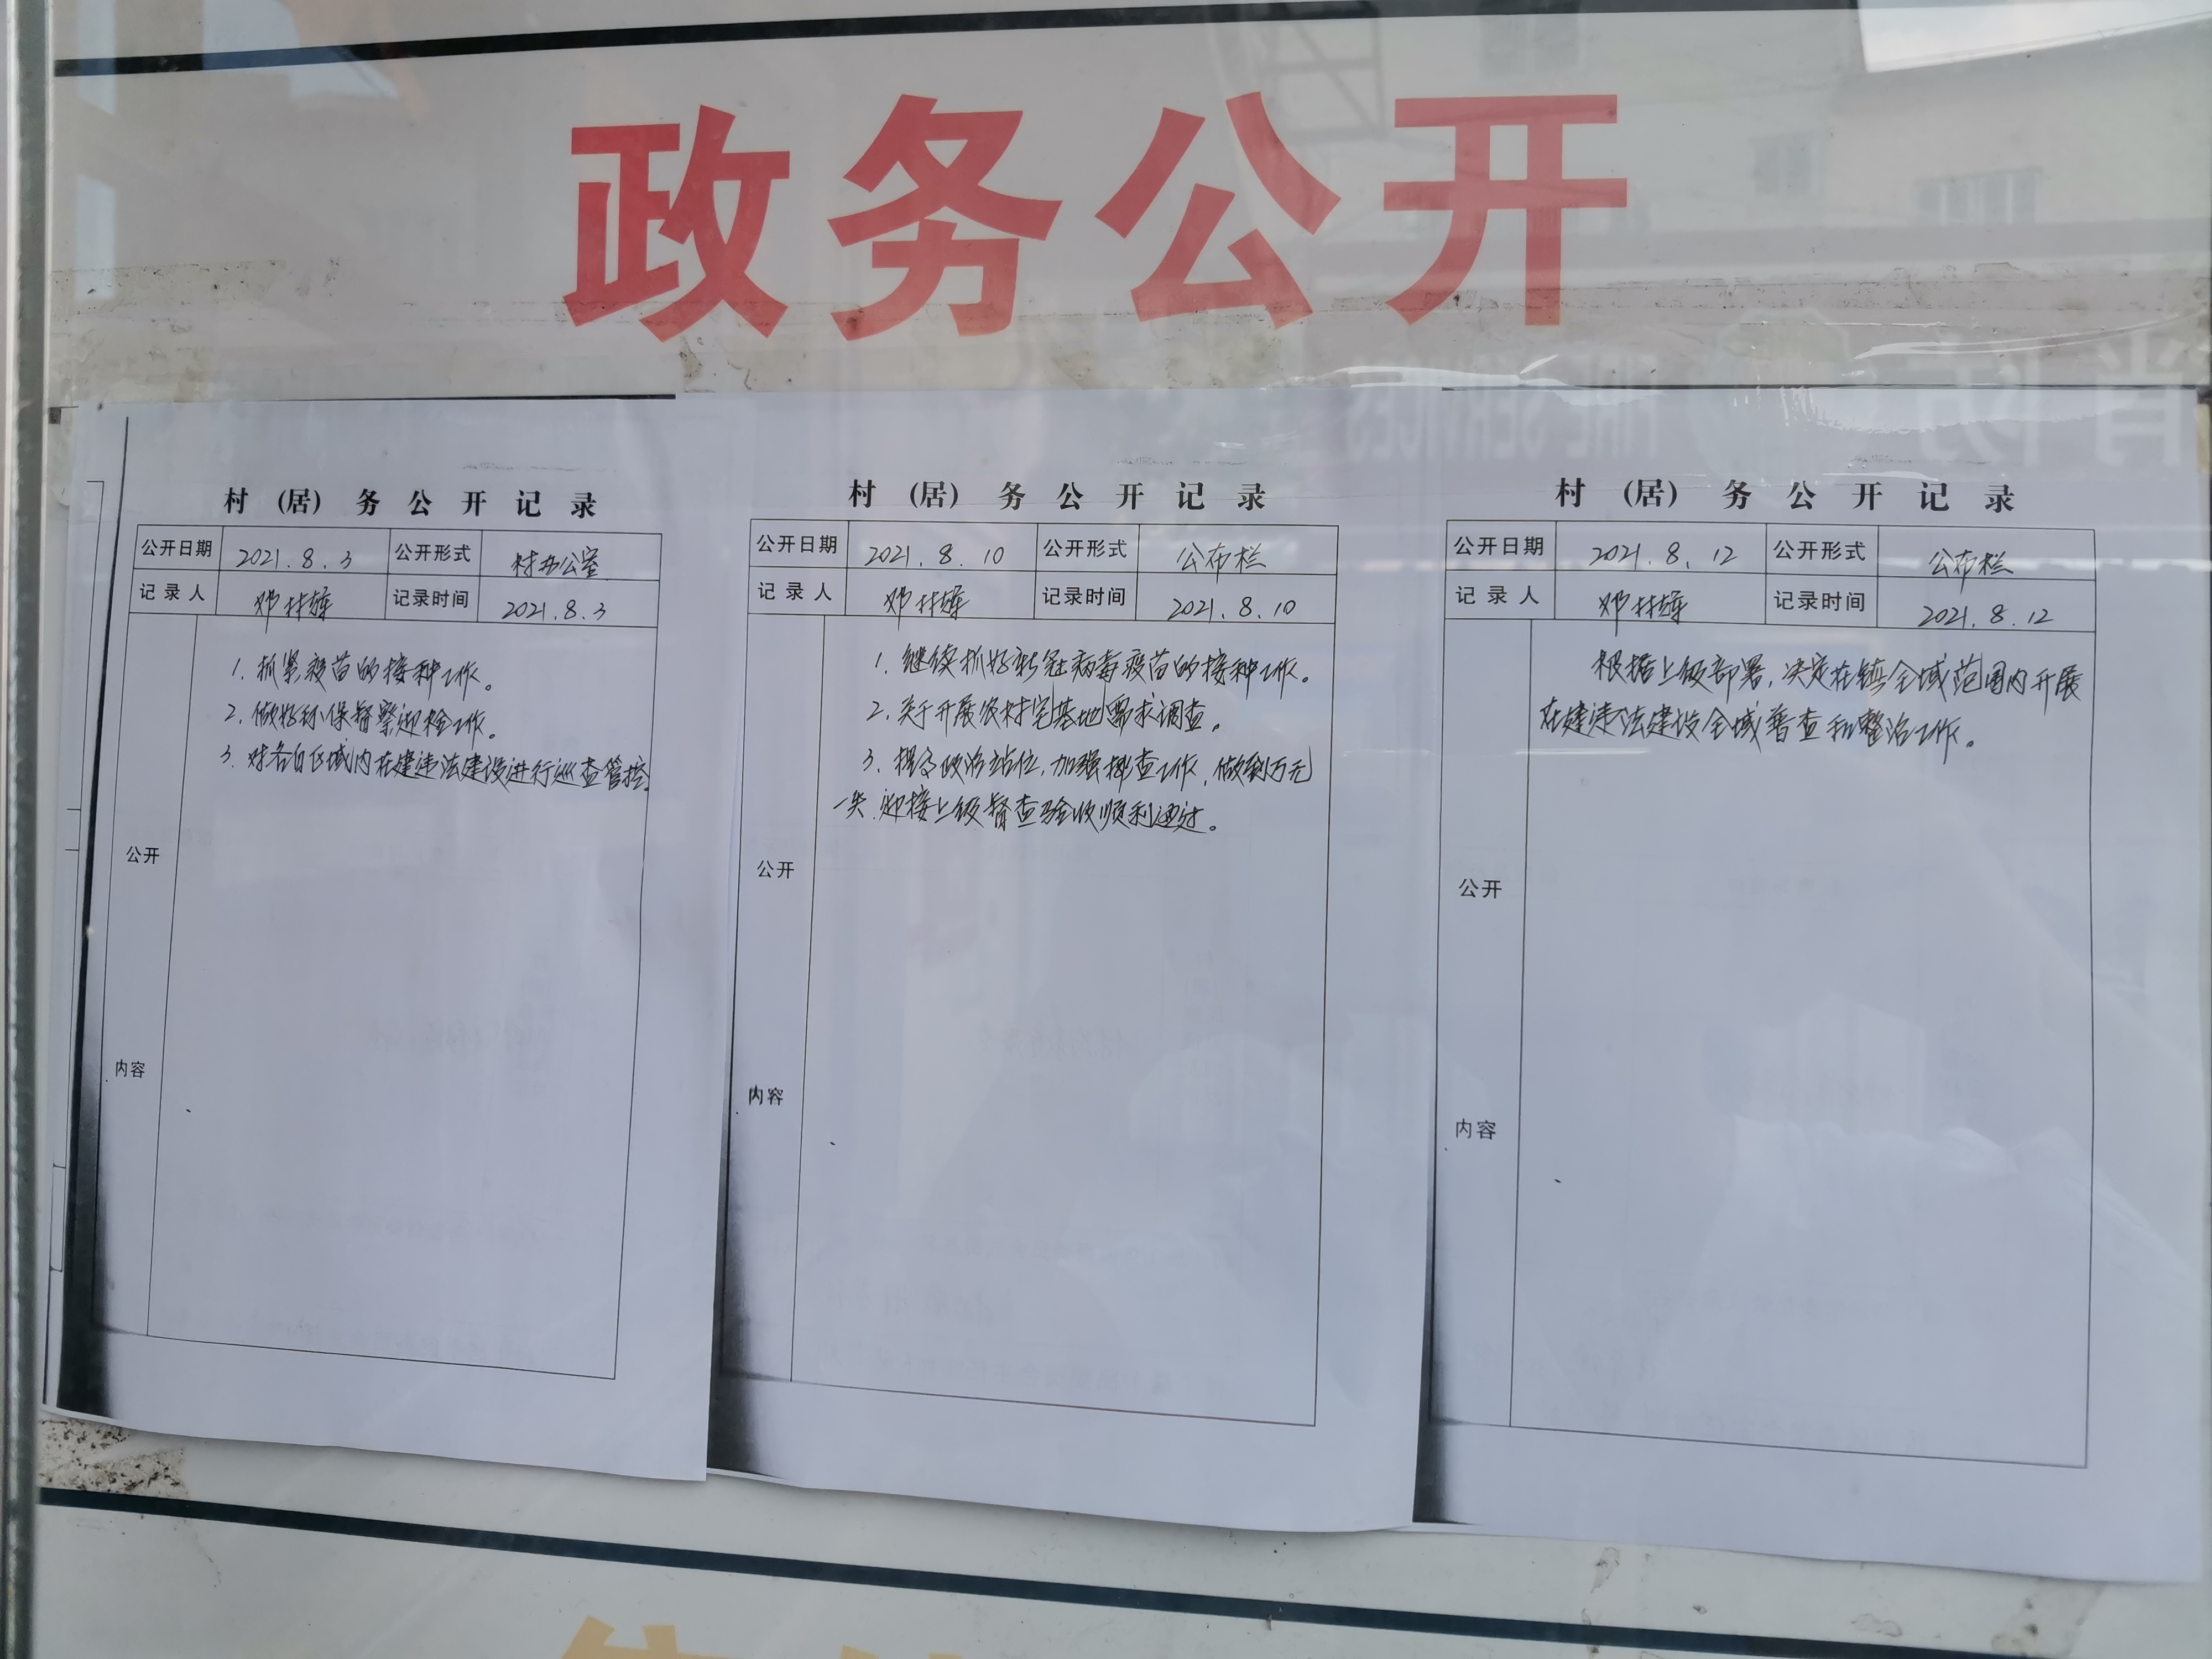 政务公开
村（居）务公开记录
公开日期 2021.8.3 公开形式 村办公室
记录人 邓村雄 记录时间 2021.8.3
1. 抓紧疫苗的接种工作。
2. 做好环保督察迎检工作。
3. 对各自区域内在建违法建设进行巡查管控。
公开
内容
村（居）务公开记录
公开日期 2021.8.10 公开形式 公布栏
记录人 邓村雄 记录时间 2021.8.10
1. 继续抓好新冠病毒疫苗的接种工作。
2. 关于开展农村宅基地需求调查。
3. 提高政治站位，加强排查工作，做到万无
一失，迎接上级督查验收顺利通过。
公开
内容
村（居）务公开记录
公开日期 2021.8.12 公开形式 公布栏
记录人 邓村雄 记录时间 2021.8.12
根据上级部署，决定在镇全域范围内开展
在建违法建设全域普查和整治工作。
公开
内容
FIRE SERVICES